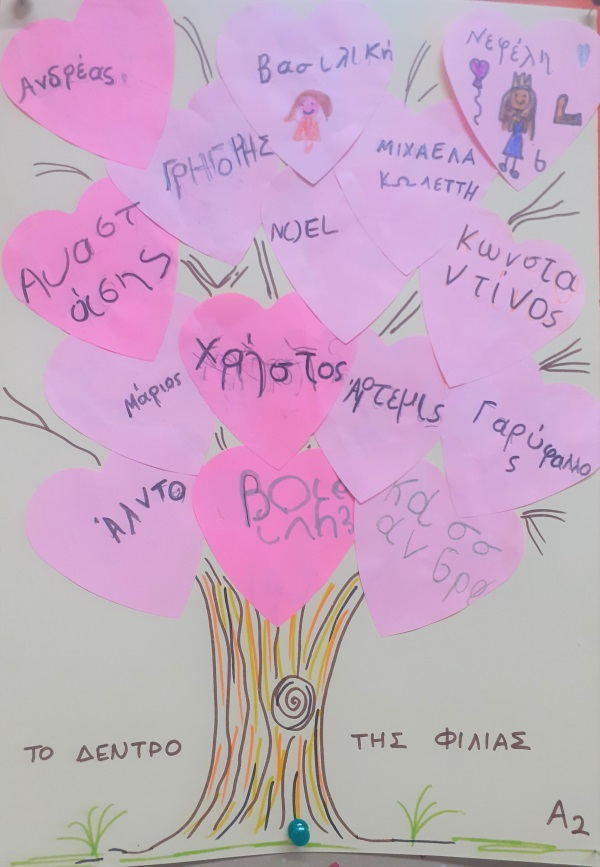 Ανδρέας
Βασιλική
Νεφέλη
ΓΡΗΓΟΡΗΣ
ΜΙΧΑΕΛΑ
ΚΩΛΕΤΤΗ
NOEL
Αναστ
άσης
Κωνστα
ντίνος
Μάριος
Χρήστος
Άρτεμις
Γαρύφαλλο
ς
Άλντο
Βασ
ιλης
Κασσ
ανδρα
ΤΟ ΔΕΝΤΡΟ ΤΗΣ ΦΙΛΙΑΣ
Α2